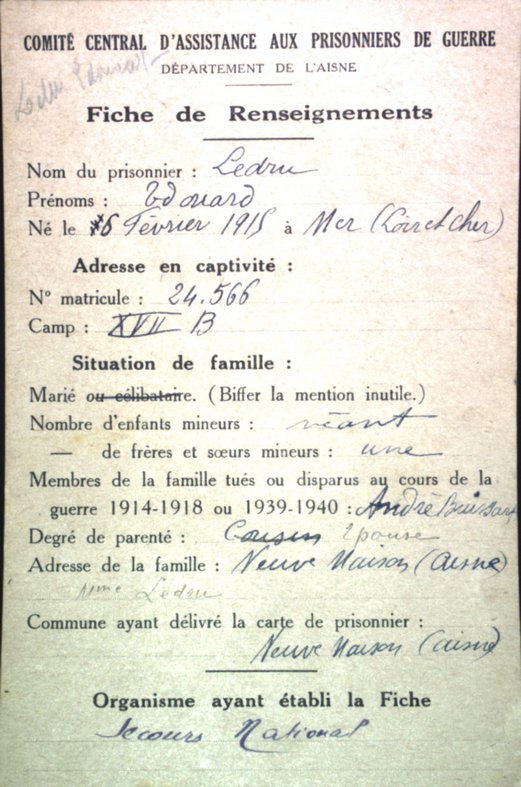 COMITÉ CENTRAL D'ASSISTANCE AUX PRISONNIERS DE GUERRE
DÉPARTEMENT DE L'AISNE
Ledru Edouard
Fiche de Renseignements
Nom du prisonnier : Ledru
Prénoms : Edouard
Né le 6 Février 1915 à Mer (Loir et Cher)
Adresse en captivité :
N° matricule : 24.566
Camp : XVII B
Situation de famille :
Marié ou célibataire. (Biffer la mention inutile.)
Nombre d'enfants mineurs : néant
— de frères et sœurs mineurs : une
Membres de la famille tués ou disparus au cours de la
guerre 1914-1918 ou 1939-1940 : André
Degré de parenté : Cousin épouse
Adresse de la famille : Neuve Maison (Aisne)
Mme Ledru
Commune ayant délivré la carte de prisonnier :
Neuve Maison (Aisne)
Organisme ayant établi la Fiche
Secours National